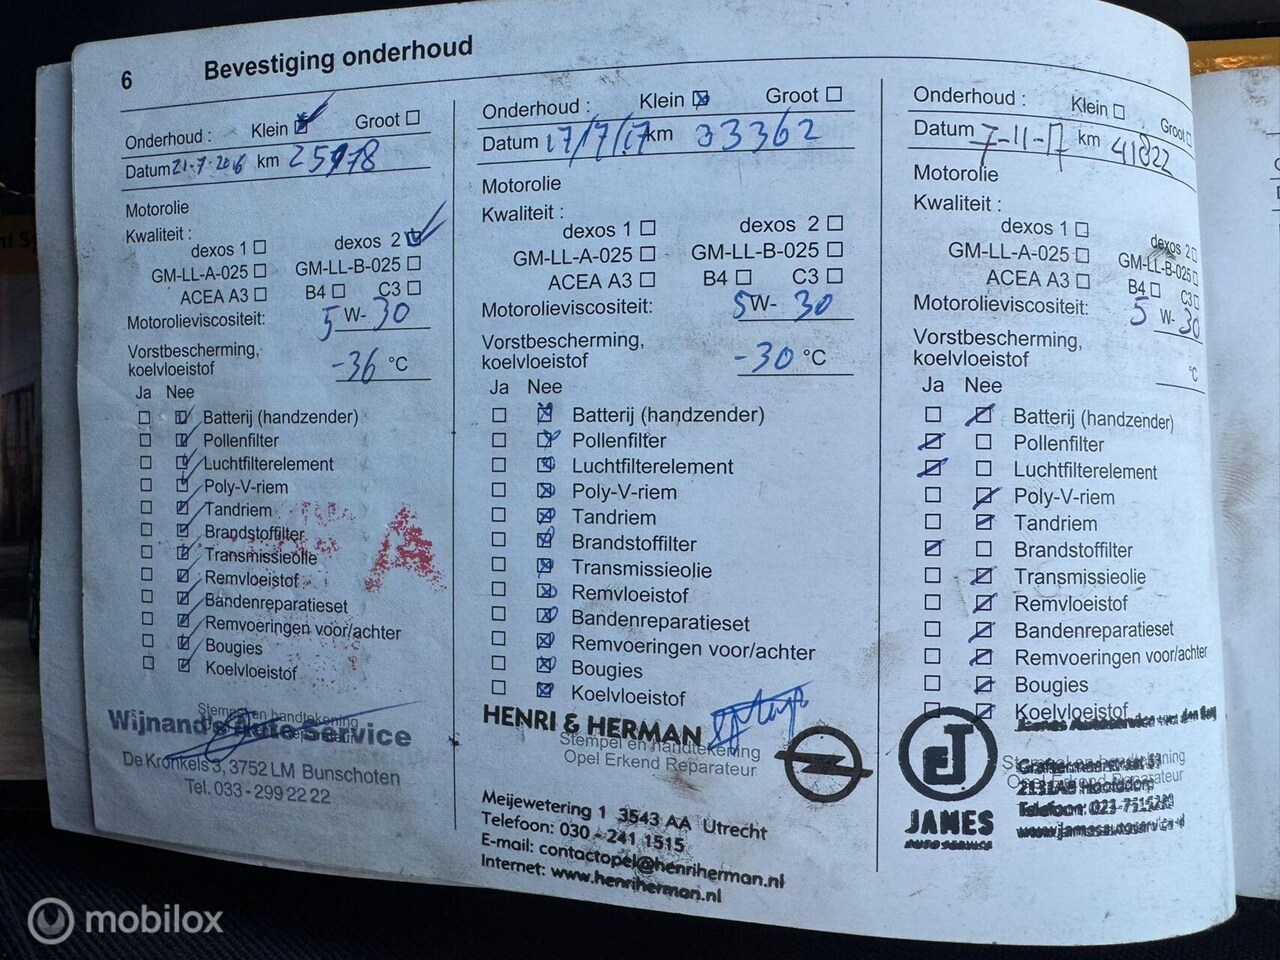 6 Bevestiging onderhoud
Onderhoud : Klein Groot
Datum 21-7-2016 km 25978
Motorolie
Kwaliteit :
dexos 1 dexos 2
GM-LL-A-025 GM-LL-B-025
ACEA A3 B4 C3
Motorolieviscositeit: 5 W- 30
Vorstbescherming,
koelvloeistof -36 °C
Ja Nee
Batterij (handzender)
Pollenfilter
Luchtfilterelement
Poly-V-riem
Tandriem
Brandstoffilter
Transmissieolie
Remvloeistof
Bandenreparatieset
Remvoeringen voor/achter
Bougies
Koelvloeistof
Stempel en handtekening
Wijnand's Auto Service
De Kronkels 3, 3752 LM Bunschoten
Tel. 033-299 22 22
Onderhoud : Klein Groot
Datum 17/7/17 km 33362
Motorolie
Kwaliteit :
dexos 1 dexos 2
GM-LL-A-025 GM-LL-B-025
ACEA A3 B4 C3
Motorolieviscositeit: 5W- 30
Vorstbescherming,
koelvloeistof -30 °C
Ja Nee
Batterij (handzender)
Pollenfilter
Luchtfilterelement
Poly-V-riem
Tandriem
Brandstoffilter
Transmissieolie
Remvloeistof
Bandenreparatieset
Remvoeringen voor/achter
Bougies
Koelvloeistof
HENRI & HERMAN
Stempel en handtekening
Opel Erkend Reparateur
Meijewetering 1 3543 AA Utrecht
Telefoon: 030 - 241 1515
E-mail: contactopel@henriherman.nl
Internet: www.henriherman.nl
Onderhoud : Klein Groot
Datum 7-11-17 km 41822
Motorolie
Kwaliteit :
dexos 1 dexos 2
GM-LL-A-025 GM-LL-B-025
ACEA A3 B4 C3
Motorolieviscositeit: 5 W- 30
Vorstbescherming,
koelvloeistof °C
Ja Nee
Batterij (handzender)
Pollenfilter
Luchtfilterelement
Poly-V-riem
Tandriem
Brandstoffilter
Transmissieolie
Remvloeistof
Bandenreparatieset
Remvoeringen voor/achter
Bougies
Koelvloeistof
James Autoservice
Opel Erkend Reparateur
2131AB Hoofddorp
Telefoon: 023-
JAMES
AUTOSERVICE
mobilox